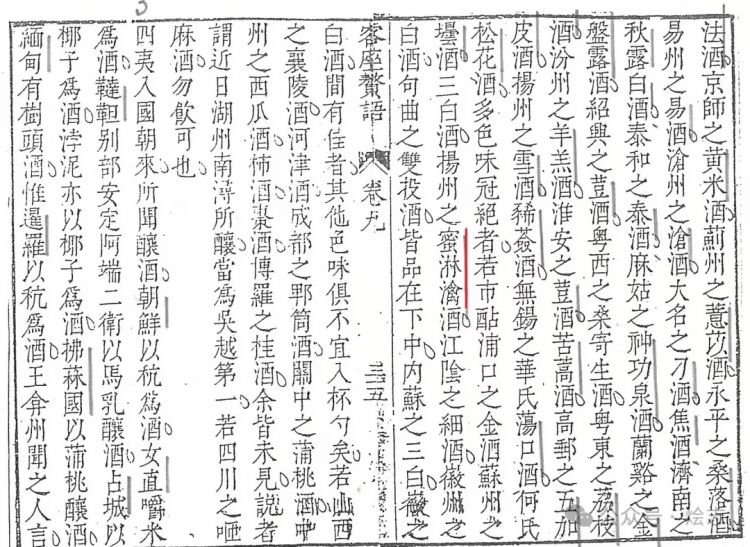 法酒京師之黃米酒薊州之薏苡酒永平之桑落酒
易州之易酒滄州之滄酒大名之刁酒焦酒濟南之
秋露白酒泰和之泰酒麻姑之神功泉酒蘭谿之金
盤露酒紹興之荳酒粵西之桑寄生酒粵東之荔枝
酒汾州之羊羔酒淮安之荳酒苦蒿酒高郵之五加
皮酒揚州之雪酒豨薟酒無錫之華氏蕩口酒何氏
松花酒多色味冠絕者若市酤浦口之金酒蘇州之
壜酒三白酒揚州之蜜淋漓酒江陰之細酒徽州之
白酒句曲之雙投酒皆品在下中內蘇之三白徽之
客座贅語 卷九 三五
白酒間有佳者其他色味俱不宜入杯勺矣若山西
之襄陵酒河津酒成都之郫筒酒關中之蒲桃酒中
州之西瓜酒柿酒棗酒博羅之桂酒余皆未見說者
謂近日湖州南潯所釀當為吳越第一若四川之咂
麻酒勿飲可也
四夷入國朝來所聞釀酒朝鮮以秔為酒女直嚼米
為酒韃靼別部安定阿端二衛以馬乳釀酒占城以
椰子為酒浡泥亦以椰子為酒拂菻國以蒲桃釀酒
緬甸有樹頭酒惟暹羅以秔為酒王弇州聞之人言